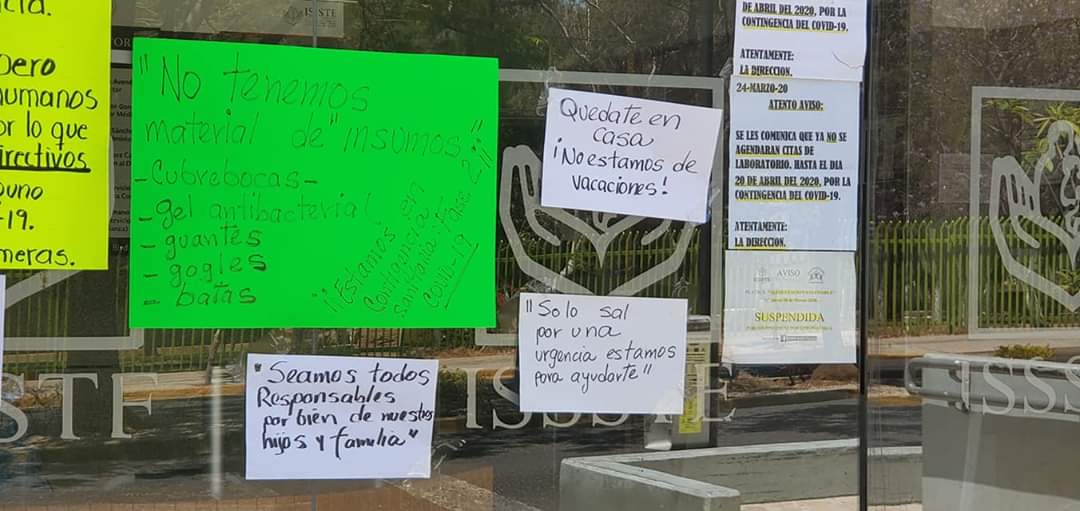 cia.
pero
humanos
or lo que
irectivos
uno
-19.
meras.
"No tenemos
material de "insumos"
- Cubrebocas -
- gel antibacterial
- guantes
- gogles
- batas
¡¡Estamos en
Contingencia
sanitaria: Fase 2!!
COVID-19
"Seamos todos
Responsables
por bien de nuestros
hijos y familia"
Quedate en
casa
¡No estamos de
vacaciones!
"Solo sal
por una
urgencia estamos
para ayudarte"
DE ABRIL DEL 2020, POR LA
CONTINGENCIA DEL COVID-19.
ATENTAMENTE:
LA DIRECCION.
24-MARZO-20
ATENTO AVISO:
SE LES COMUNICA QUE YA NO SE
AGENDARAN CITAS DE
LABORATORIO. HASTA EL DIA
20 DE ABRIL DEL 2020, POR LA
CONTINGENCIA DEL COVID-19.
ATENTAMENTE:
LA DIRECCION.
AVISO
SUSPENDIDA
ISSSTE
STE
ISSSTE
ISSS